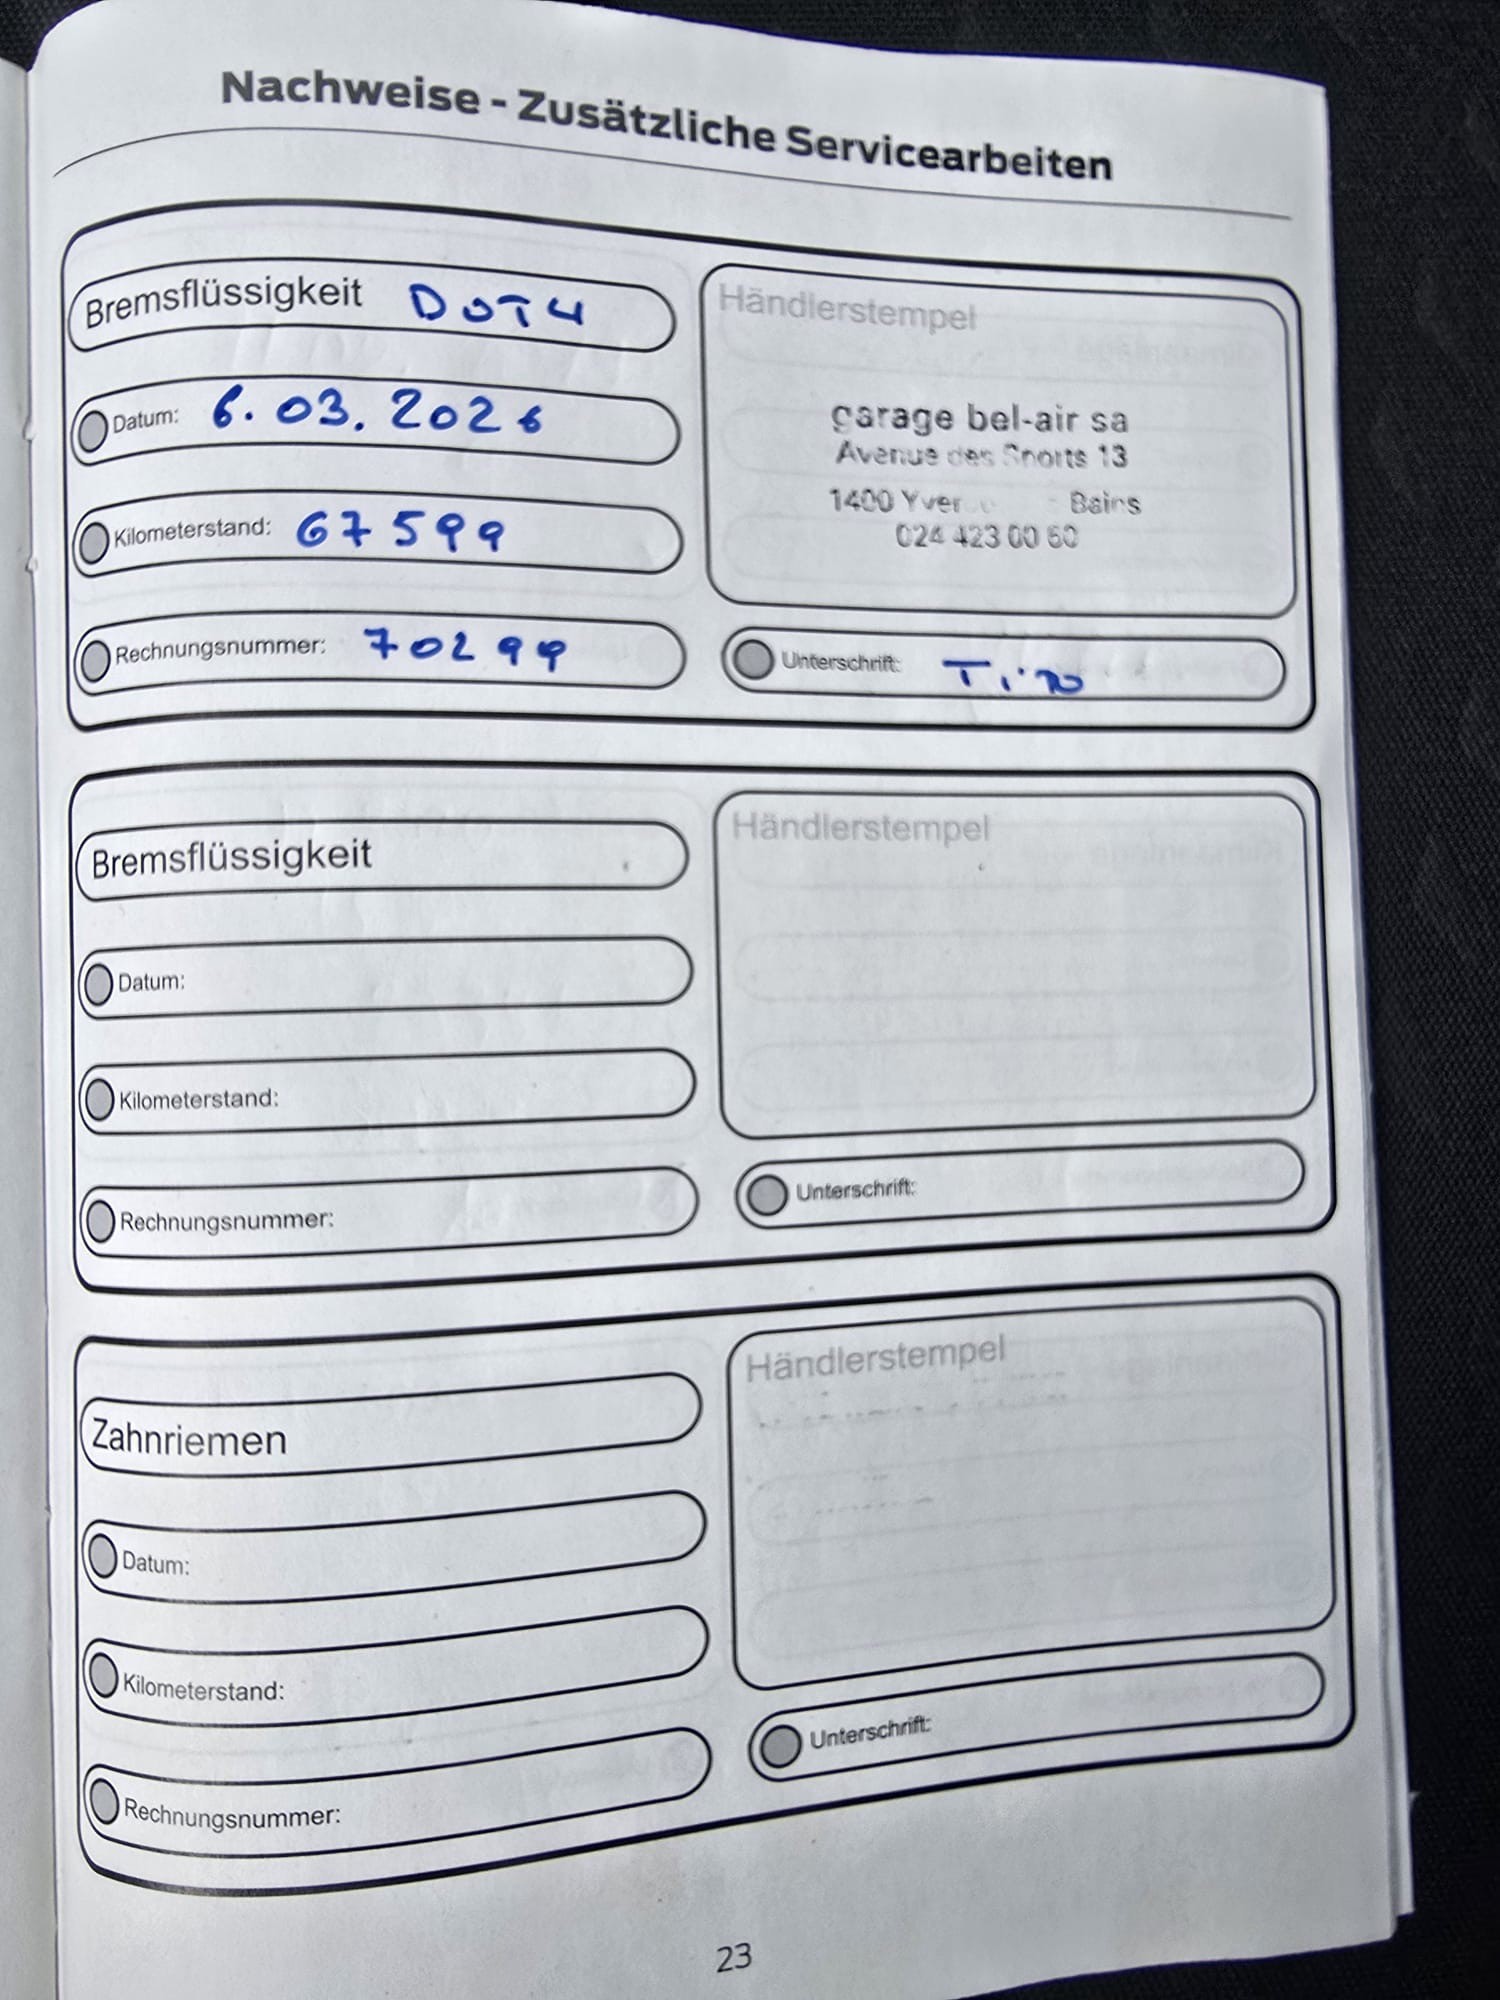 Nachweise - Zusätzliche Servicearbeiten
Bremsflüssigkeit DOT4
Datum: 6.03.2026
Kilometerstand: 67599
Rechnungsnummer: 70299
Händlerstempel
garage bel-air sa
Avenue des Sports 13
1400 Yver Bains
024 423 00 60
Unterschrift:
Bremsflüssigkeit
Datum:
Kilometerstand:
Rechnungsnummer:
Händlerstempel
Unterschrift:
Zahnriemen
Datum:
Kilometerstand:
Rechnungsnummer:
Händlerstempel
Unterschrift:
23